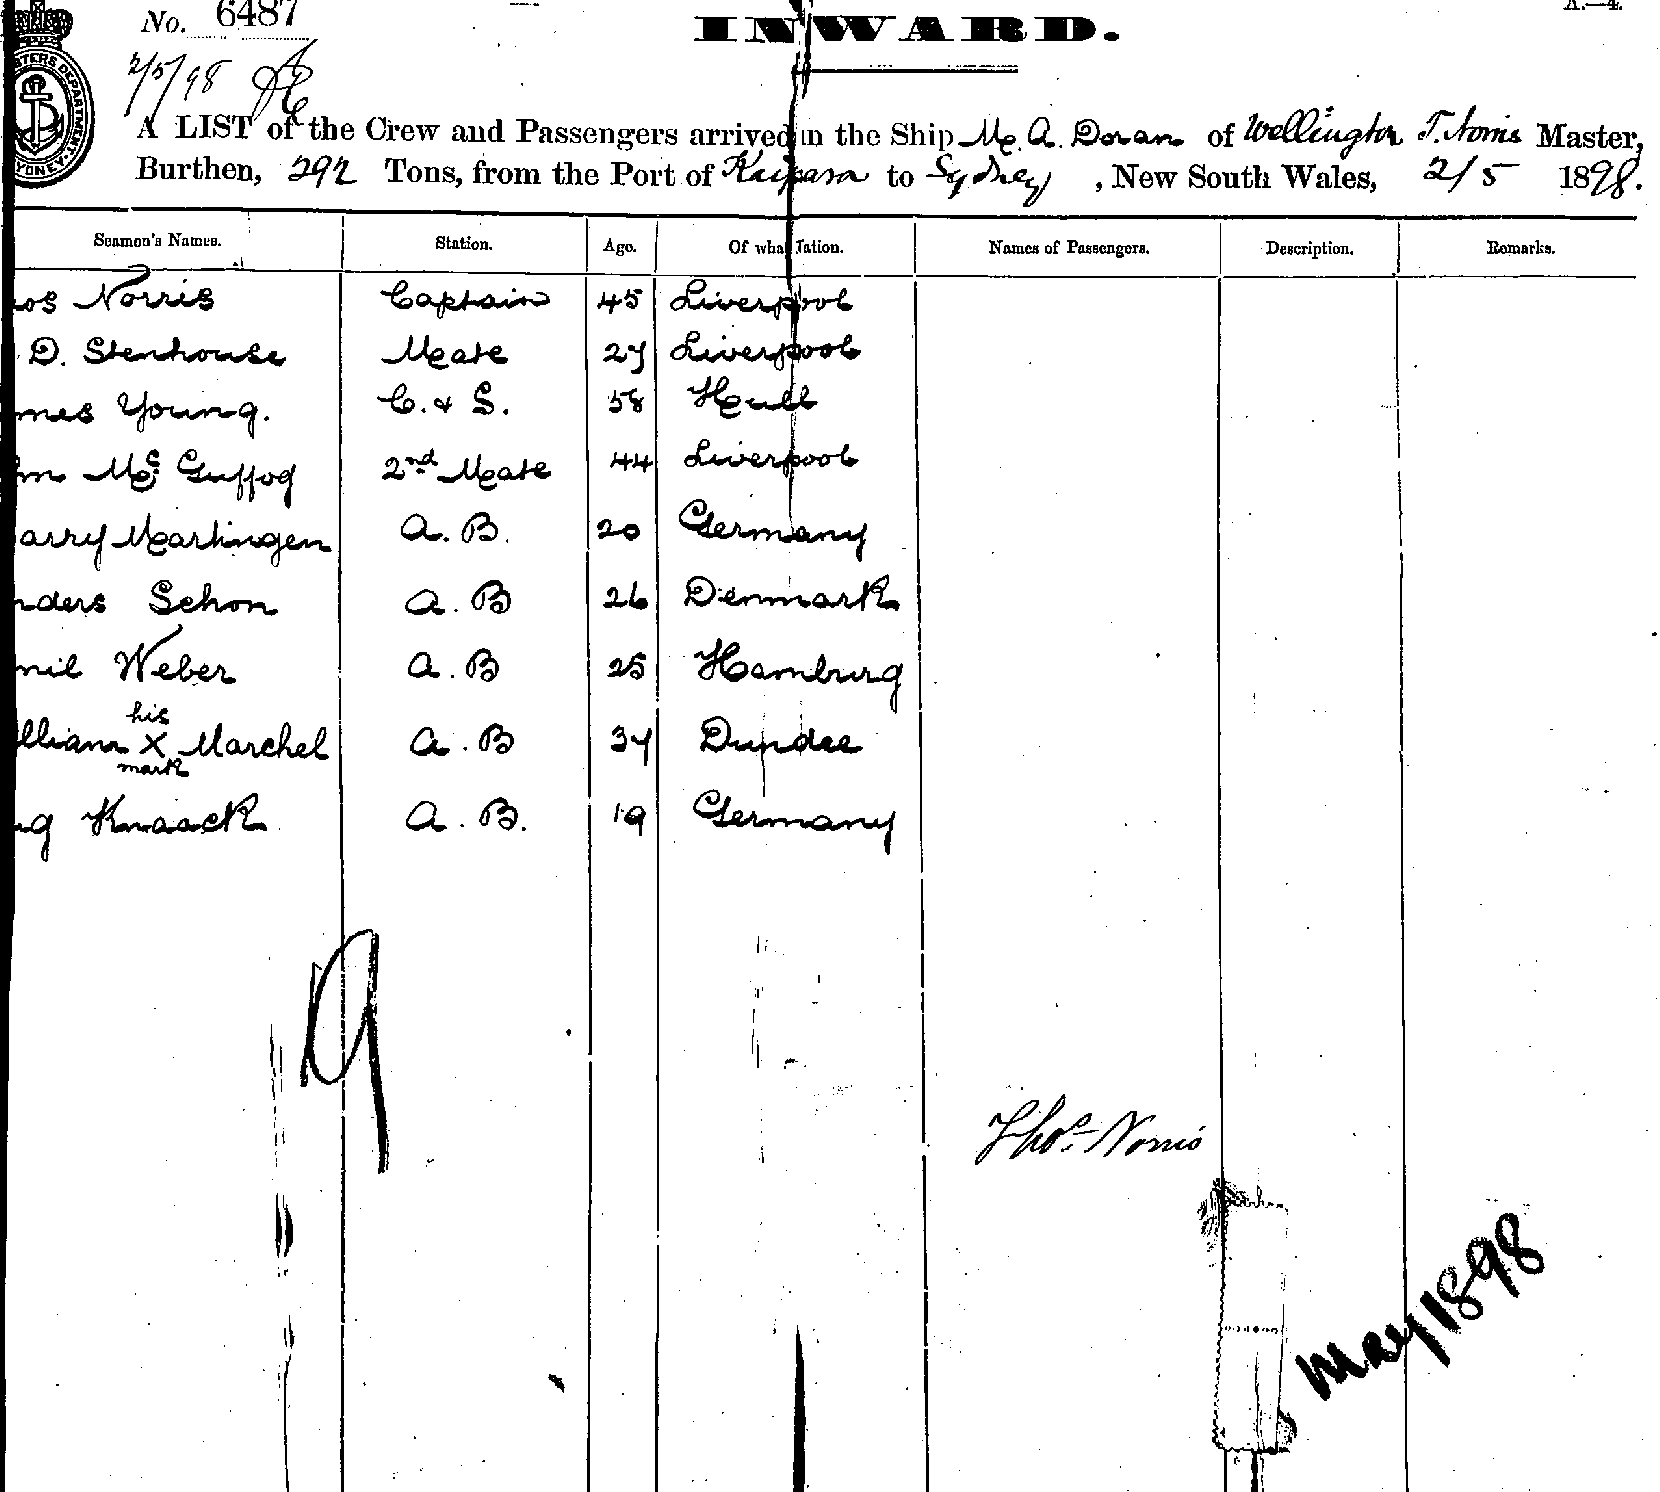 A.—4.
No. 6487
INWARD.
2/5/98
A LIST of the Crew and Passengers arrived in the Ship M. A. Doran of Wellington T. Norris Master,
Burthen, 292 Tons, from the Port of Kaipara to Sydney, New South Wales, 2/5 1898.
Seamen's Names. Station. Age. Of what Nation. Names of Passengers. Description. Remarks.
os Norris Captain 45 Liverpool
D. Stenhouse Mate 27 Liverpool
mes Young. C. & S. 58 Hull
hn Mc Guffog 2nd Mate 44 Liverpool
arry Martingen A. B. 20 Germany
nders Schon A. B 26 Denmark
mil Weber A. B 25 Hamburg
his
illiam X Marchel A. B 34 Dundee
mark
ug Knaack A. B. 19 Germany
9
Thos. Norris
May 1898